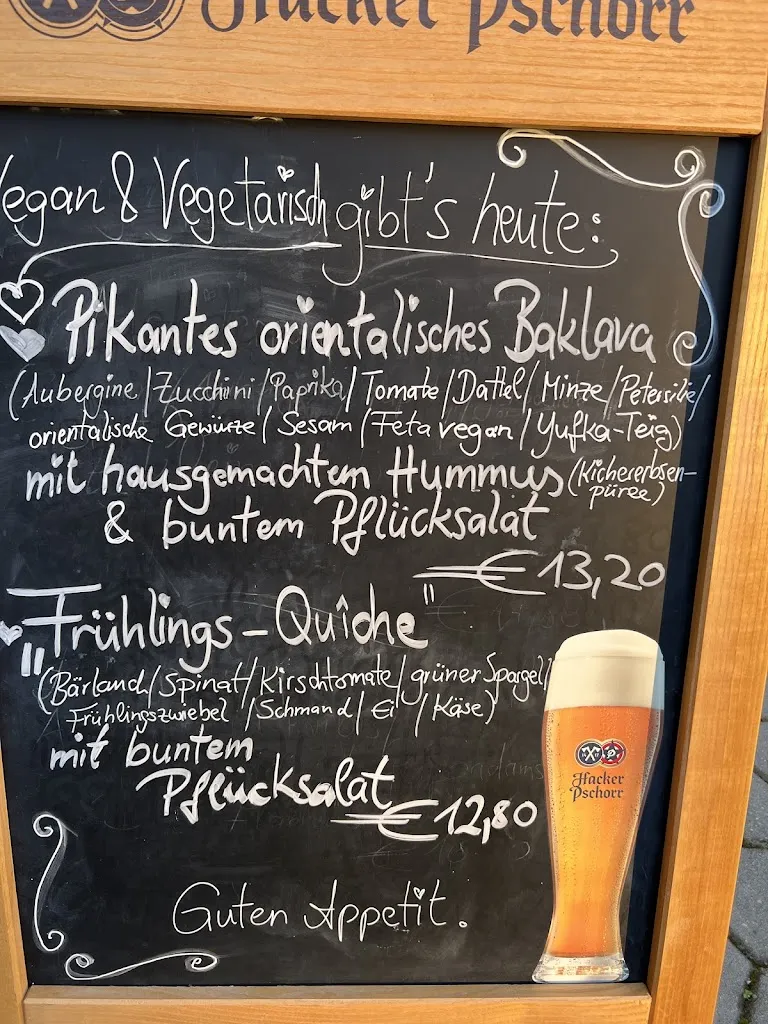 Hacker Pschorr
Vegan & Vegetarisch gibt's heute:
Pikantes orientalisches Baklava
(Aubergine/Zucchini/Paprika/Tomate/Dattel/Minze/Petersilie/
orientalische Gewürze/Sesam/Feta vegan/Yufka-Teig)
mit hausgemachtem Hummus (Kichererbsen-
püree)
& buntem Pflücksalat
€ 13,20
"Frühlings-Quîche"
(Bärlauch/Spinat/Kirschtomate/grüner Spargel/
Frühlingszwiebel/Schmand/Ei/Käse)
mit buntem
Pflücksalat
€ 12,80
Hacker
Pschorr
Guten Appetit.